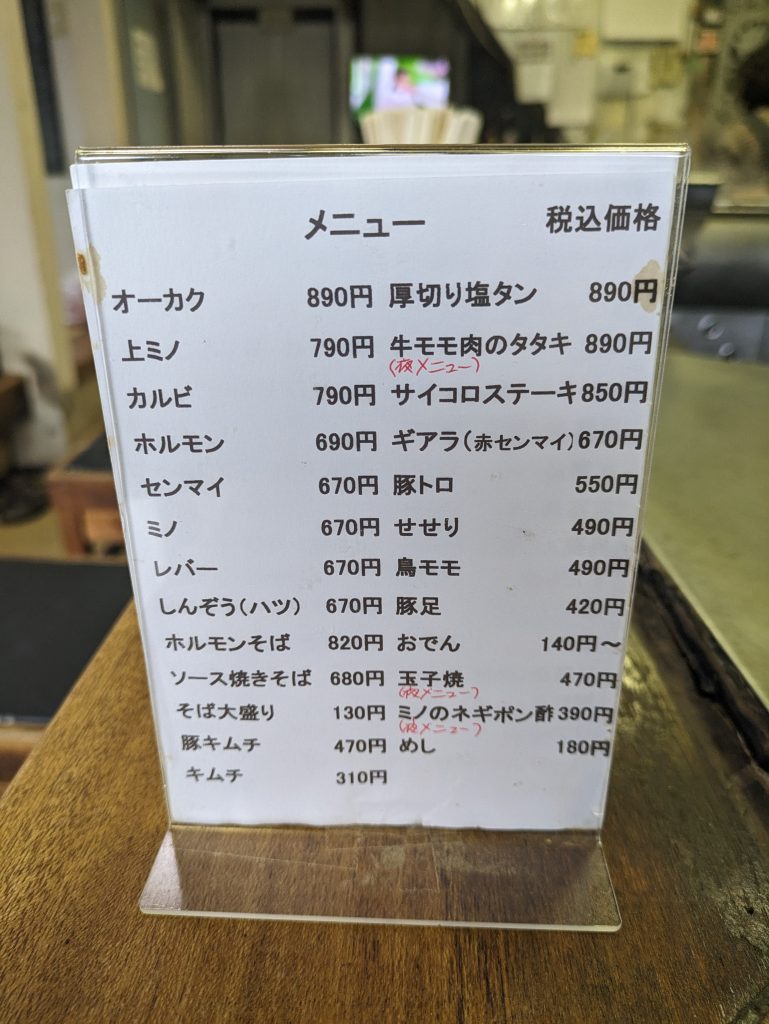 メニュー 税込価格
オーカク 890円 厚切り塩タン 890円
上ミノ 790円 牛モモ肉のタタキ 890円
(夜メニュー)
カルビ 790円 サイコロステーキ 850円
ホルモン 690円 ギアラ(赤センマイ) 670円
センマイ 670円 豚トロ 550円
ミノ 670円 せせり 490円
レバー 670円 鳥モモ 490円
しんぞう(ハツ) 670円 豚足 420円
ホルモンそば 820円 おでん 140円～
ソース焼きそば 680円 玉子焼 470円
(夜メニュー)
そば大盛り 130円 ミノのネギポン酢 390円
(夜メニュー)
豚キムチ 470円 めし 180円
キムチ 310円